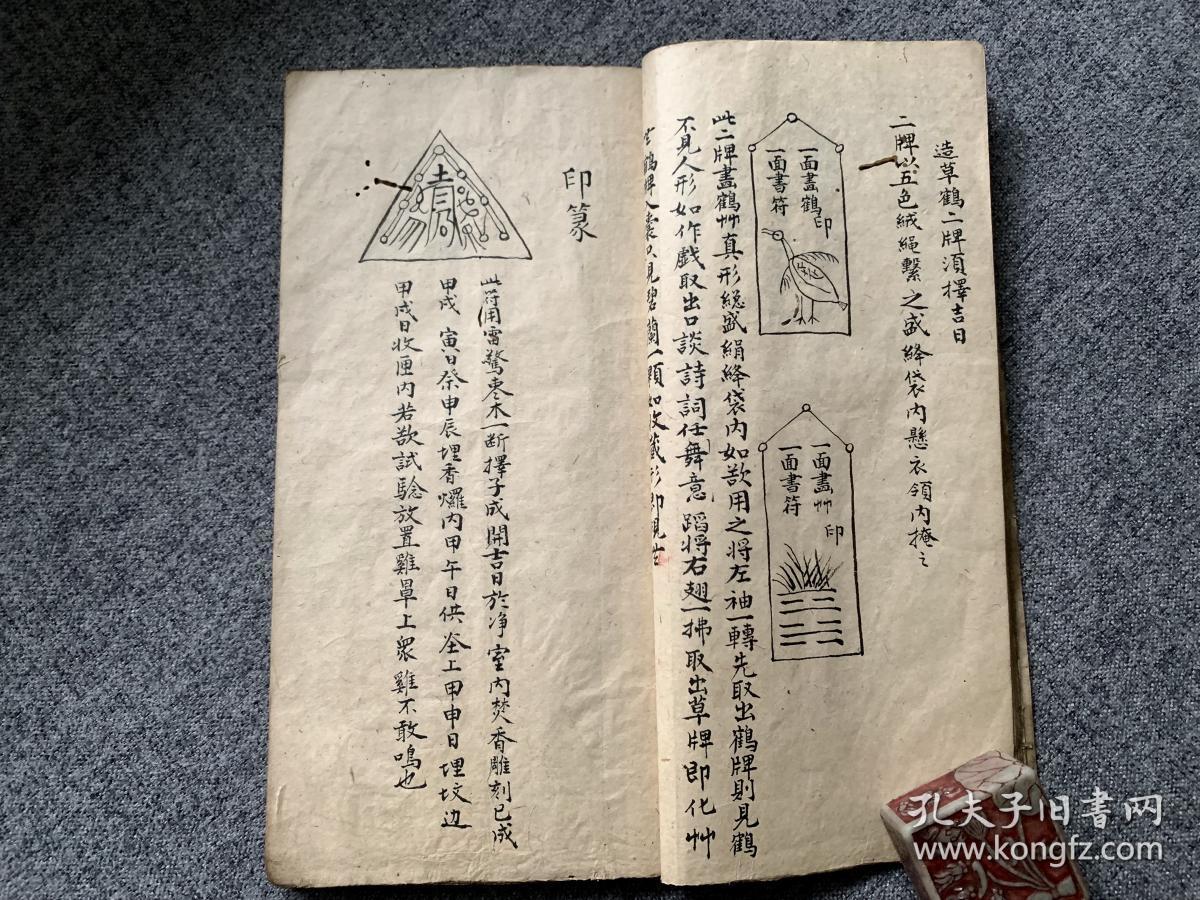 造草鶴二牌須擇吉日
二牌以五色絨繩繫之盛絳袋内懸衣領内掩之
一面畫鶴印
一面書符
一面畫艸印
一面書符
此二牌畫鶴艸真形縂盛絹絳袋内如欲用之将左袖一轉先取出鶴牌則見鶴
不見人形如作戲取出口談詩詞任舞意蹈将右翅一拂取出草牌即化艸
鶴牌入囊只見碧蘭一顆如收藏形即現
印篆
此符用雷驚枣木一断擇子成開吉日於净室内焚香雕刻已成
甲戍寅日祭甲辰埋香爐内甲午日供仝上甲申日埋坟边
甲戍日收匣内若欲試騐放置雞罩上衆雞不敢鳴也
孔夫子旧书网
www.kongfz.com